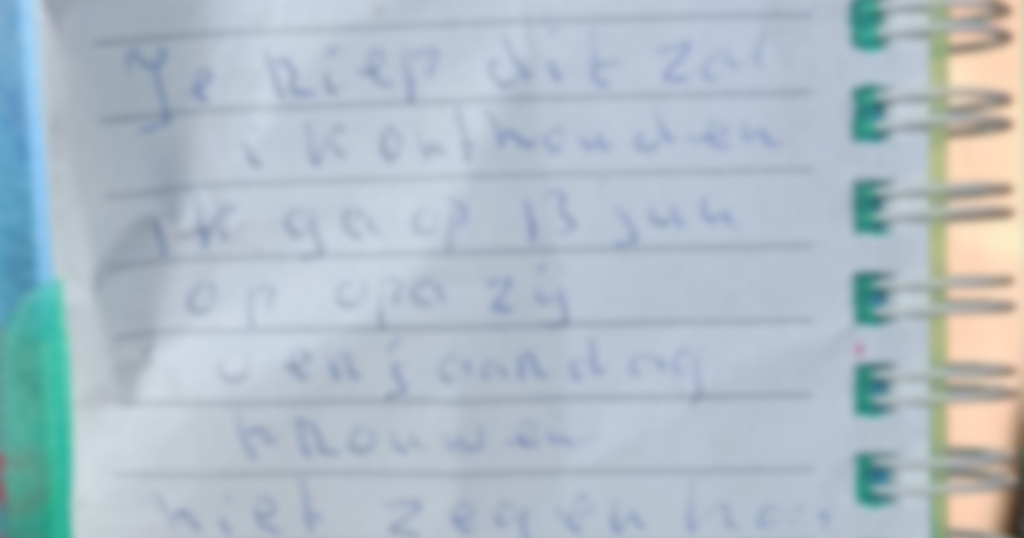 Je riep dit zal
ik onthouden
ik ga op 13 jun
op opa zij
verjaardag
trouwen
niet zegen hoor